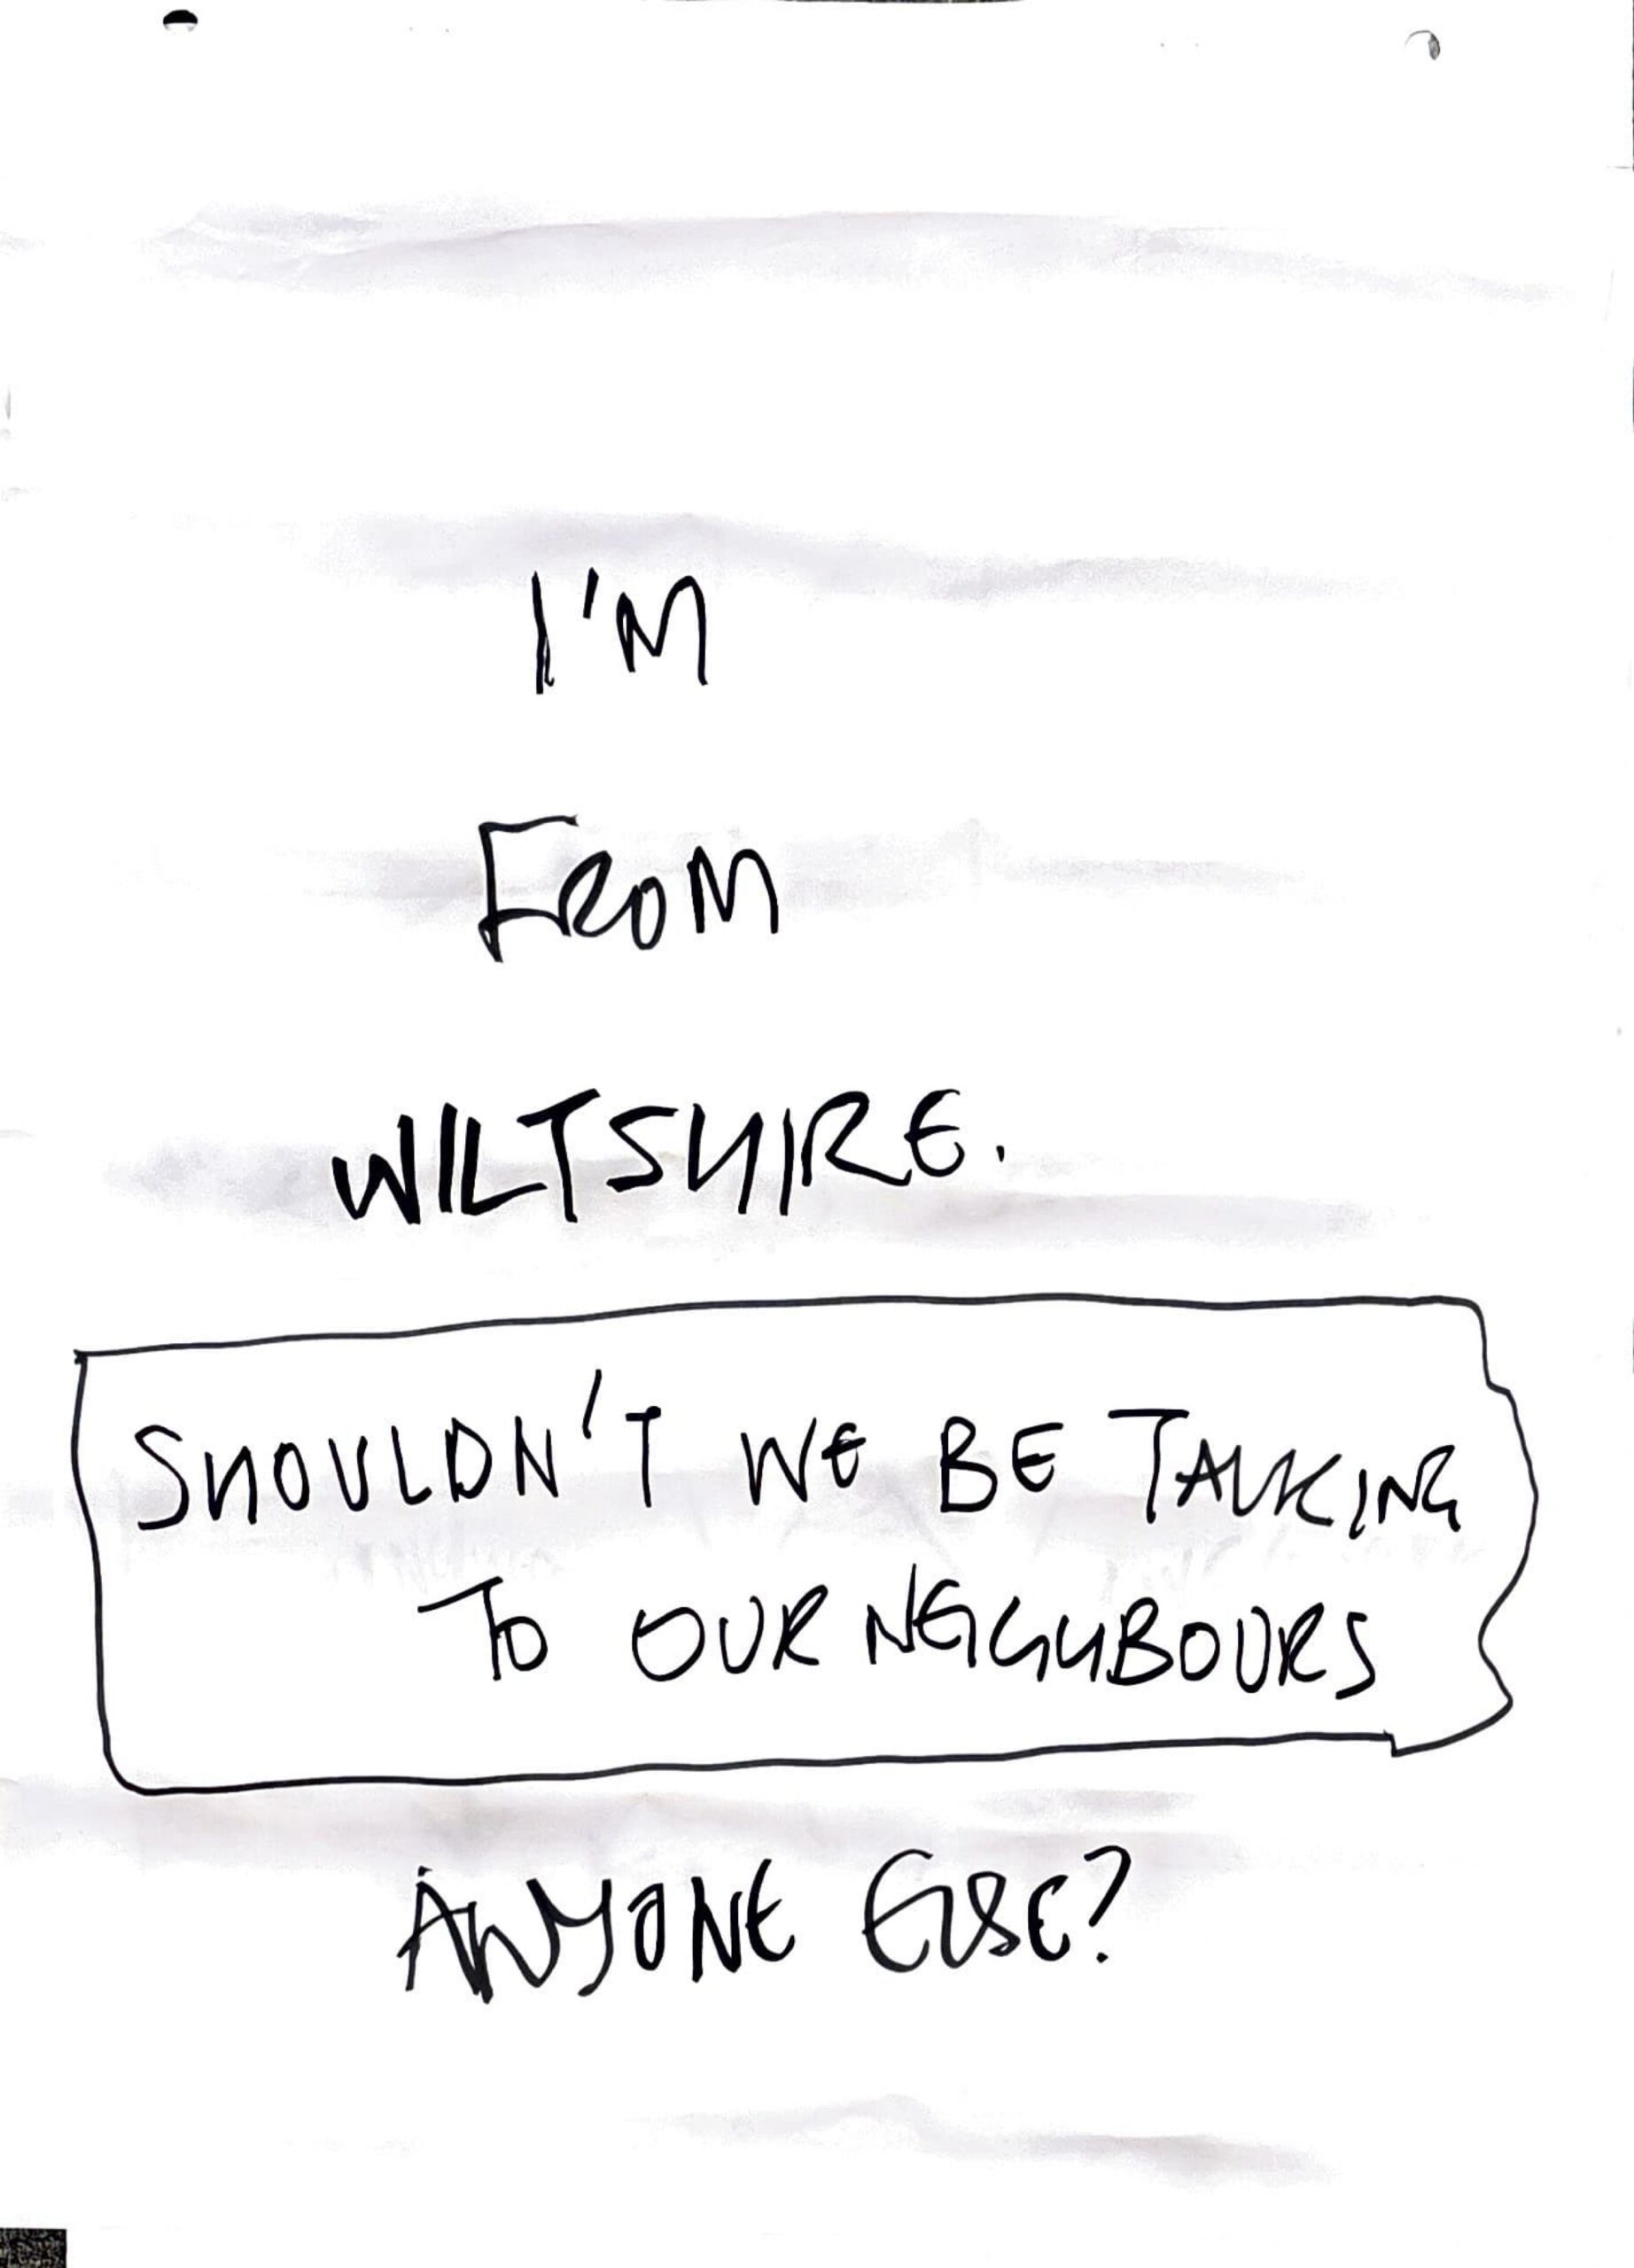 I'M
FROM
WILTSHIRE.
SHOULDN'T WE BE TALKING
TO OUR NEIGHBOURS
ANYONE ELSE?